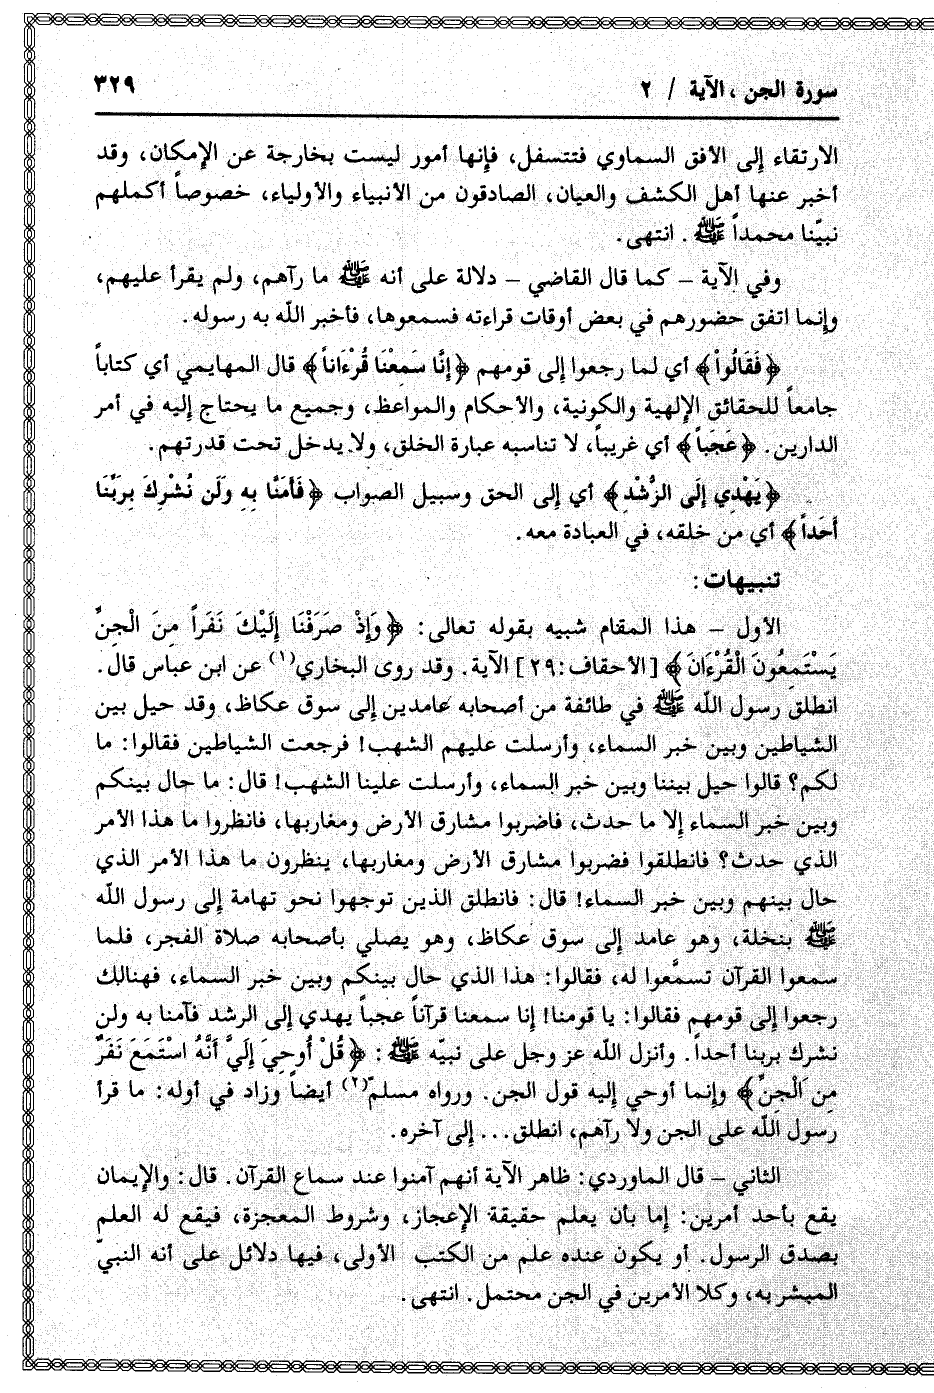 سورة الجن ، الآية / ٢ ٣٢٩
الارتقاء إلى الأفق السماوي فتتسفل، فإنها أمور ليست بخارجة عن الإمكان، وقد
أخبر عنها أهل الكشف والعيان، الصادقون من الأنبياء والأولياء، خصوصاً أكملهم
نبيّنا محمداً ﷺ . انتهى.
وفي الآية – كما قال القاضي – دلالة على أنه ﷺ ما رآهم، ولم يقرأ عليهم،
وإنما اتفق حضورهم في بعض أوقات قراءته فسمعوها، فأخبر اللّه به رسوله.
﴿فَقَالُواْ﴾ أي لما رجعوا إلى قومهم ﴿إِنَّا سَمِعْنَا قُرْءَاناً﴾ قال المهايمي أي كتاباً
جامعاً للحقائق الإلهية والكونية، والأحكام والمواعظ، وجميع ما يحتاج إليه في أمر
الدارين. ﴿عَجَباً﴾ أي غريباً، لا تناسبه عبارة الخلق، ولا يدخل تحت قدرتهم.
﴿يَهْدِي إِلَى الرُّشْدِ﴾ أي إلى الحق وسبيل الصواب ﴿فَأَمَنَّا بِهِ وَلَن نُشْرِكَ بِرَبِّنَا
أَحَداً﴾ أي من خلقه، في العبادة معه.
تنبيهات:
الأول – هذا المقام شبيه بقوله تعالى: ﴿وَإِذْ صَرَفْنَا إِلَيْكَ نَفَراً مِنَ الْجِنِّ
يَسْتَمِعُونَ الْقُرْءَانَ﴾ [الأحقاف:٢٩] الآية. وقد روى البخاري(١) عن ابن عباس قال.
انطلق رسول اللّه ﷺ في طائفة من أصحابه عامدين إلى سوق عكاظ، وقد حيل بين
الشياطين وبين خبر السماء، وأرسلت عليهم الشهب! فرجعت الشياطين فقالوا: ما
لكم؟ قالوا حيل بيننا وبين خبر السماء، وأرسلت علينا الشهب! قال: ما حال بينكم
وبين خبر السماء إلا ما حدث، فاضربوا مشارق الأرض ومغاربها، فانظروا ما هذا الأمر
الذي حدث؟ فانطلقوا فضربوا مشارق الأرض ومغاربها، ينظرون ما هذا الأمر الذي
حال بينهم وبين خبر السماء! قال: فانطلق الذين توجهوا نحو تهامة إلى رسول اللّه
ﷺ بنخلة، وهو عامد إلى سوق عكاظ، وهو يصلي بأصحابه صلاة الفجر، فلما
سمعوا القرآن تسمَّعوا له، فقالوا: هذا الذي حال بينكم وبين خبر السماء، فهنالك
رجعوا إلى قومهم فقالوا: يا قومنا! إنا سمعنا قرآناً عجباً يهدي إلى الرشد فآمنا به ولن
نشرك بربنا أحداً. وأنزل اللّه عز وجل على نبيّه ﷺ : ﴿قُلْ أُوحِيَ إِلَيَّ أَنَّهُ اسْتَمَعَ نَفَرٌ
مِنَ الْجِنِّ﴾ وإنما أوحي إليه قول الجن. ورواه مسلم(٢) أيضاً وزاد في أوله: ما قرأ
رسول اللّه على الجن ولا رآهم، انطلق... إلى آخره.
الثاني – قال الماوردي: ظاهر الآية أنهم آمنوا عند سماع القرآن. قال: والإيمان
يقع بأحد أمرين: إما بأن يعلم حقيقة الإعجاز، وشروط المعجزة، فيقع له العلم
بصدق الرسول. أو يكون عنده علم من الكتب الأولى، فيها دلائل على أنه النبيّ
المبشر به، وكلا الأمرين في الجن محتمل. انتهى.